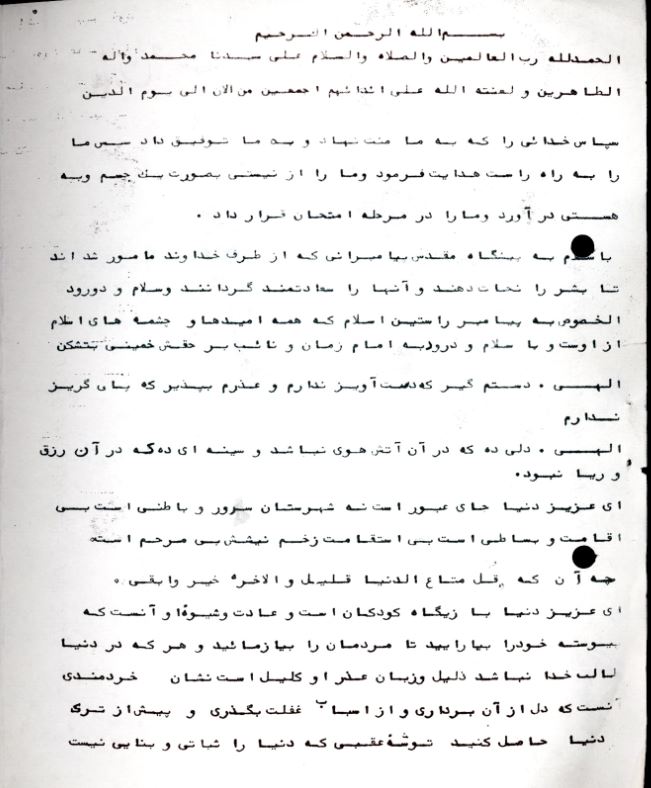 بسم الله الرحمن الرحیم
الحمدلله رب العالمین والصلاه والسلام علی سیدنا محمد واله
الطاهرین و لعنته الله علی اعدائهم اجمعین من الان الی یوم الدین
سپاس خدائی را که به ما منت نهاد و به ما توفیق داد سپس ما
را به راه راست هدایت فرمود وما را از نیستی بصورت یک جسم وبه
هستی در آورد ومارا در مرحله امتحان قرار داد .
با سلام به پیشگاه مقدس پیامبرانی که از طرف خداوند مامور شد اند
تا بشر را نجات دهند و آنها را سعادتمند گردانند وسلام و دورود
الخصوص به پیامبر راستین اسلام که همه امیدها و چشمه های اسلام
از اوست و با سلام و درودبه امام زمان و نائب بر حقش خمینی بتشکن
الهی . دستم گیر که دست آویز ندارم و عذرم بپذیر که پای گریز
ندارم
الهی . دلی ده که در آن آتش هوی نباشد و سینه ای ده که در آن رزق
و ریا نبود.
ای عزیز دنیا جای عبور است نه شهرستان سرور و باطنی است بی
اقامت و بساطی است بی استقامت زخم نیشش بی مرحم است
چه آن که قل متاع الدنیا قلیل و الاخره خیر وابقی .
ای عزیز دنیا بازیگاه کودکان است و عادت وشیوۀ او آنست که
پیوسته خودرا بیارایید تا مردمان را بیازمائید و هر که در دنیا
طالب خدا نباشد ذلیل وزبان عذر او کلیل است نشان خردمندی
آنست که دل از آن برداری و از اسباب غفلت بگذری و پیش از ترک
دنیا حاصل کنید توشۀ عقبی که دنیا را ثباتی و بنایی نیست